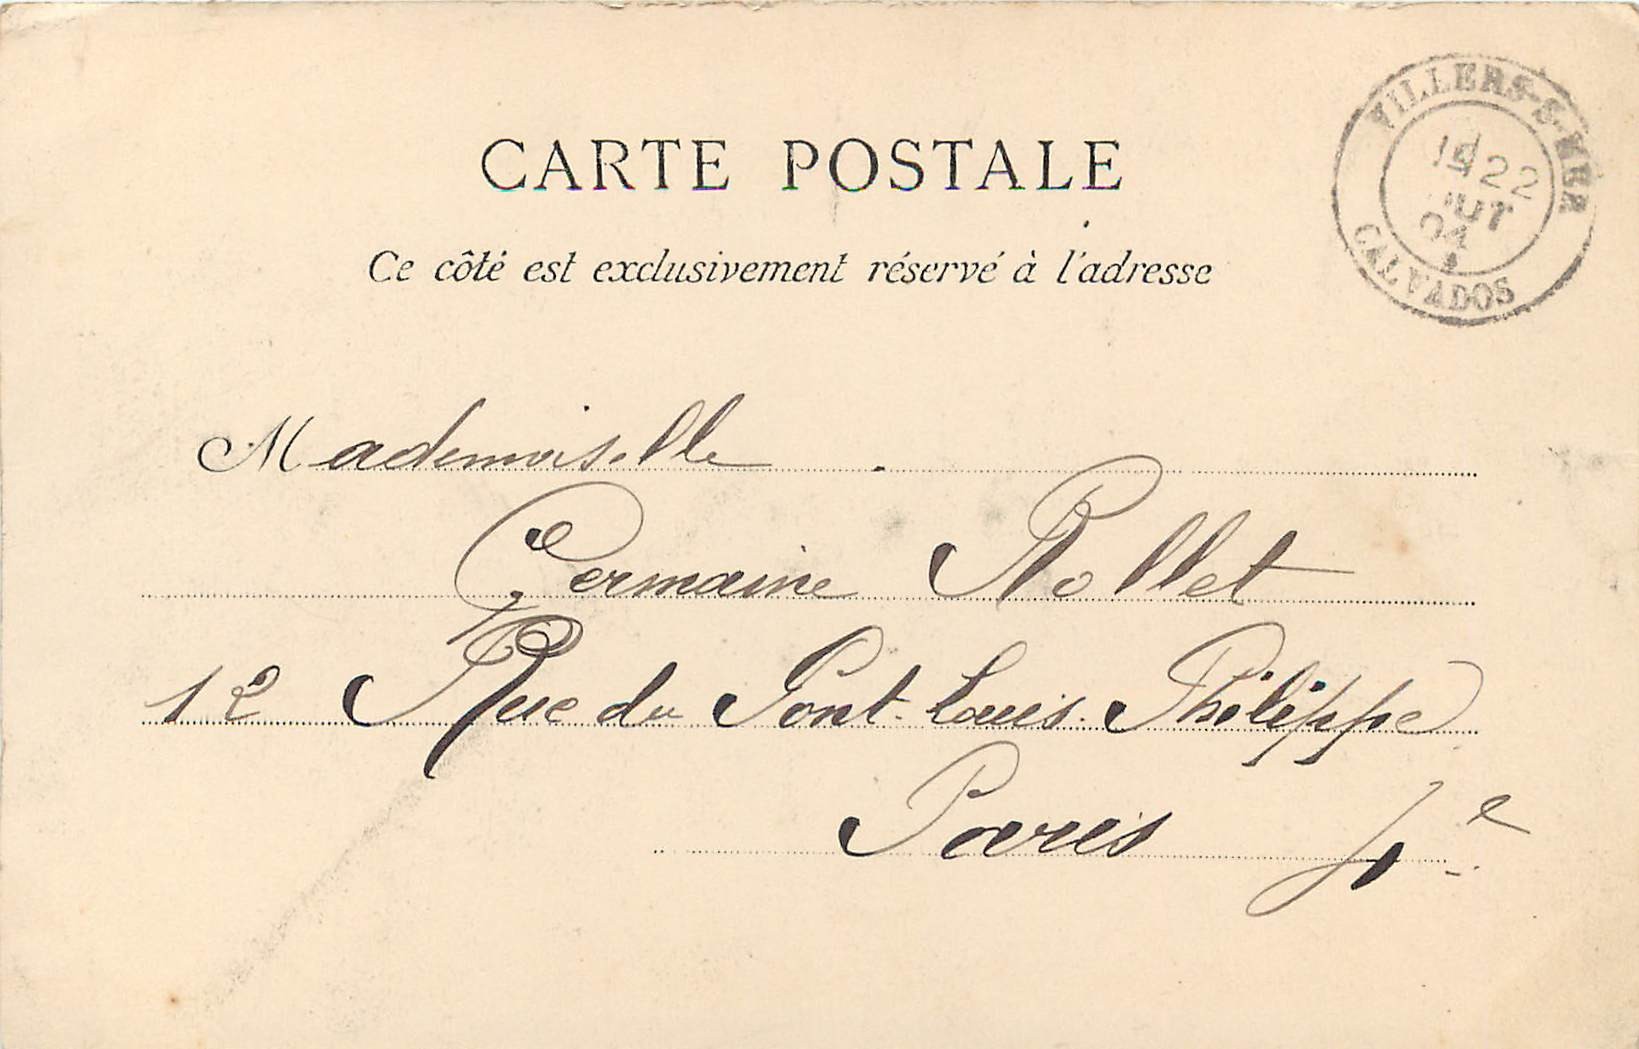 CARTE POSTALE
Ce côté est exclusivement réservé à l'adresse
VILLERS-S-MER
22
CALVADOS
Mademoiselle
Germaine Rollet
12 Rue du Pont-Louis-Philippe
Paris 4e